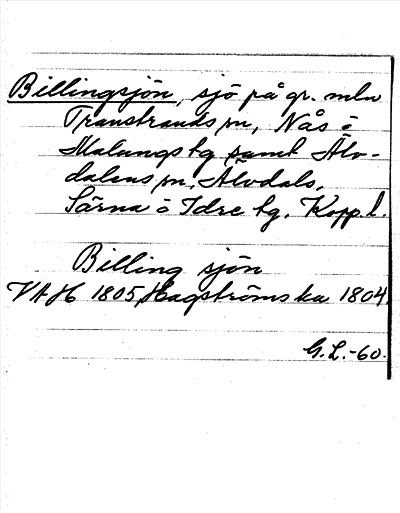 Billingsjön, sjö på gr. mln
Transtrands sn, Nås o
Malungs tg samt Älv-
dalens sn, Älvdals,
Särna o Idre tg. Kopp. l.
Billing sjön
VAH 1805, Hagströms ka 1804
G.L.-60.